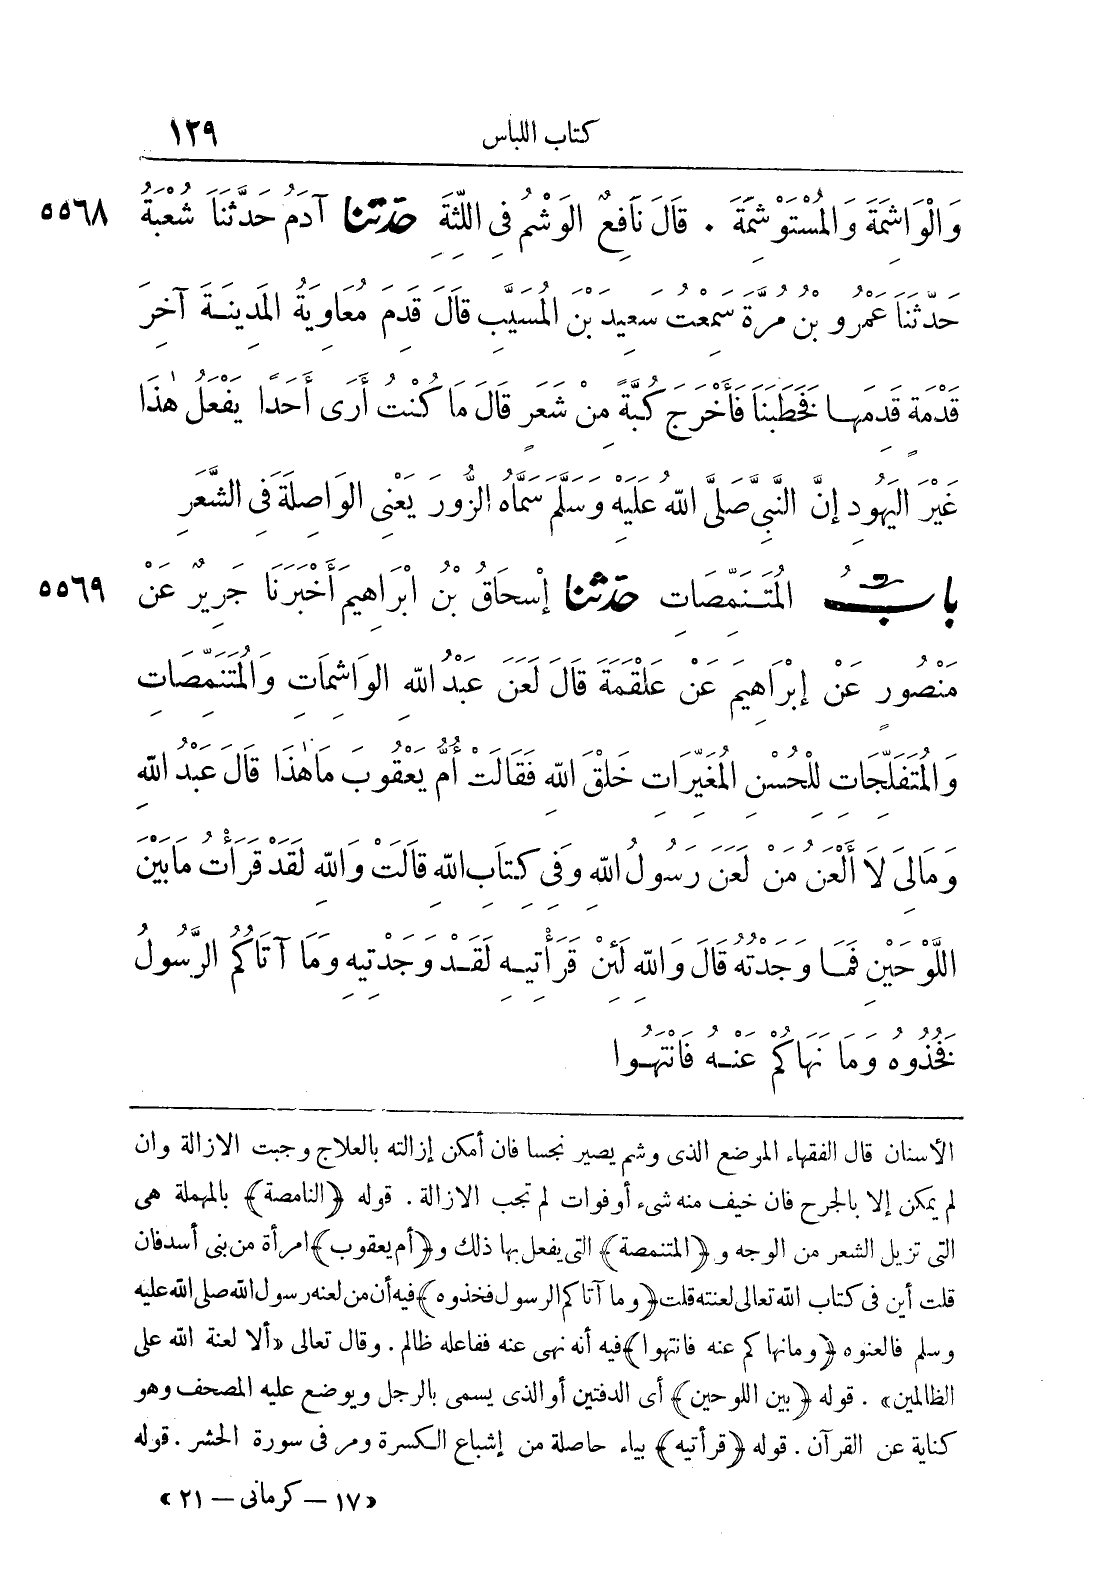 كتاب اللباس ١٢٩
وَالْوَاشِمَةَ وَالْمُسْتَوْشِمَةَ . قَالَ نَافِعٌ الوَشْمُ فِي اللِّثَةِ حدثنا آدَمُ حَدَّثَنَا شُعْبَةُ ٥٥٦٨
حَدَّثَنَا عَمْرُو بْنُ مُرَّةَ سَمِعْتُ سَعِيدَ بْنَ الْمُسَيَّبِ قَالَ قَدِمَ مُعَاوِيَةُ الْمَدِينَةَ آخِرَ
قَدْمَةٍ قَدِمَهَا فَخَطَبَنَا فَأَخْرَجَ كُبَّةً مِنْ شَعَرٍ قَالَ مَا كُنْتُ أَرَى أَحَدًا يَفْعَلُ هٰذَا
غَيْرَ الْيَهُودِ إِنَّ النَّبِيَّ صَلَّى اللهُ عَلَيْهِ وَسَلَّمَ سَمَّاهُ الزُّورَ يَعْنِي الْوَاصِلَةَ فِي الشَّعَرِ
بابُ الْمُتَنَمِّصَاتِ حدثنا إِسْحَاقُ بْنُ ابْرَاهِيمَ أَخْبَرَنَا جَرِيرٌ عَنْ ٥٥٦٩
مَنْصُورٍ عَنْ إِبْرَاهِيمَ عَنْ عَلْقَمَةَ قَالَ لَعَنَ عَبْدُ اللهِ الْوَاشِمَاتِ وَالْمُتَنَمِّصَاتِ
وَالْمُتَفَلِّجَاتِ لِلْحُسْنِ الْمُغَيِّرَاتِ خَلْقَ اللهِ فَقَالَتْ أُمُّ يَعْقُوبَ مَاهٰذَا قَالَ عَبْدُ اللهِ
وَمَالِيَ لَا أَلْعَنُ مَنْ لَعَنَ رَسُولُ اللهِ وَفِي كِتَابِ اللهِ قَالَتْ وَاللهِ لَقَدْ قَرَأْتُ مَابَيْنَ
اللَّوْحَيْنِ فَمَا وَجَدْتُهُ قَالَ وَاللهِ لَئِنْ قَرَأْتِيهِ لَقَدْ وَجَدْتِيهِ وَمَا آتَاكُمُ الرَّسُولُ
فَخُذُوهُ وَمَا نَهَاكُمْ عَنْهُ فَانْتَهُوا
الأسنان قال الفقهاء الموضع الذى وشم يصير نجسا فان أمكن إزالته بالعلاج وجبت الازالة وان
لم يمكن إلا بالجرح فان خيف منه شىء أوفوات لم تجب الازالة . قوله ﴿النامصة﴾ بالمهملة هى
التى تزيل الشعر من الوجه و ﴿المتنمصة﴾ التى يفعل بها ذلك و﴿أم يعقوب﴾ امرأة من بنى أسد فان
قلت أين فى كتاب الله تعالى لعنته قلت ﴿وما آتاكم الرسول فخذوه﴾ فيه أن من لعنه رسول الله صلى الله عليه
وسلم فالعنوه ﴿ومانهاكم عنه فانتهوا﴾ فيه أنه نهى عنه ففاعله ظالم . وقال تعالى «ألا لعنة الله على
الظالمين» . قوله ﴿بين اللوحين﴾ أى الدفتين أوالذى يسمى بالرجل ويوضع عليه المصحف وهو
كناية عن القرآن . قوله ﴿قرأتيه﴾ بياء حاصلة من إشباع الكسرة ومر فى سورة الحشر . قوله
«١٧ – كرمانى – ٢١»